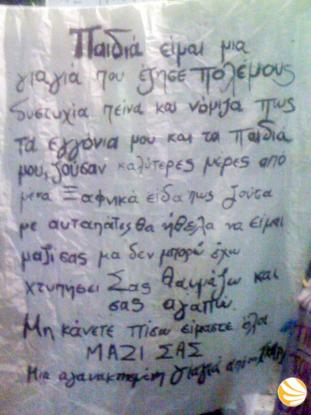 Παιδιά είμαι μια
γιαγιά που έζησε πολέμους
δυστυχία πείνα και νόμιζα πως
τα εγγόνια μου και τα παιδιά
μου, ζούσαν καλύτερες μέρες από
μένα Ξαφνικά είδα πως ζούσα
με αυταπάτες θα ήθελα να είμαι
μαζί σας μα δεν μπορώ έχω
χτυπήσει Σας θαυμάζω και
σας αγαπώ.
Μη κάνετε πίσω είμαστε όλοι
ΜΑΖΙ ΣΑΣ
Μια αγανακτισμένη γιαγιά από